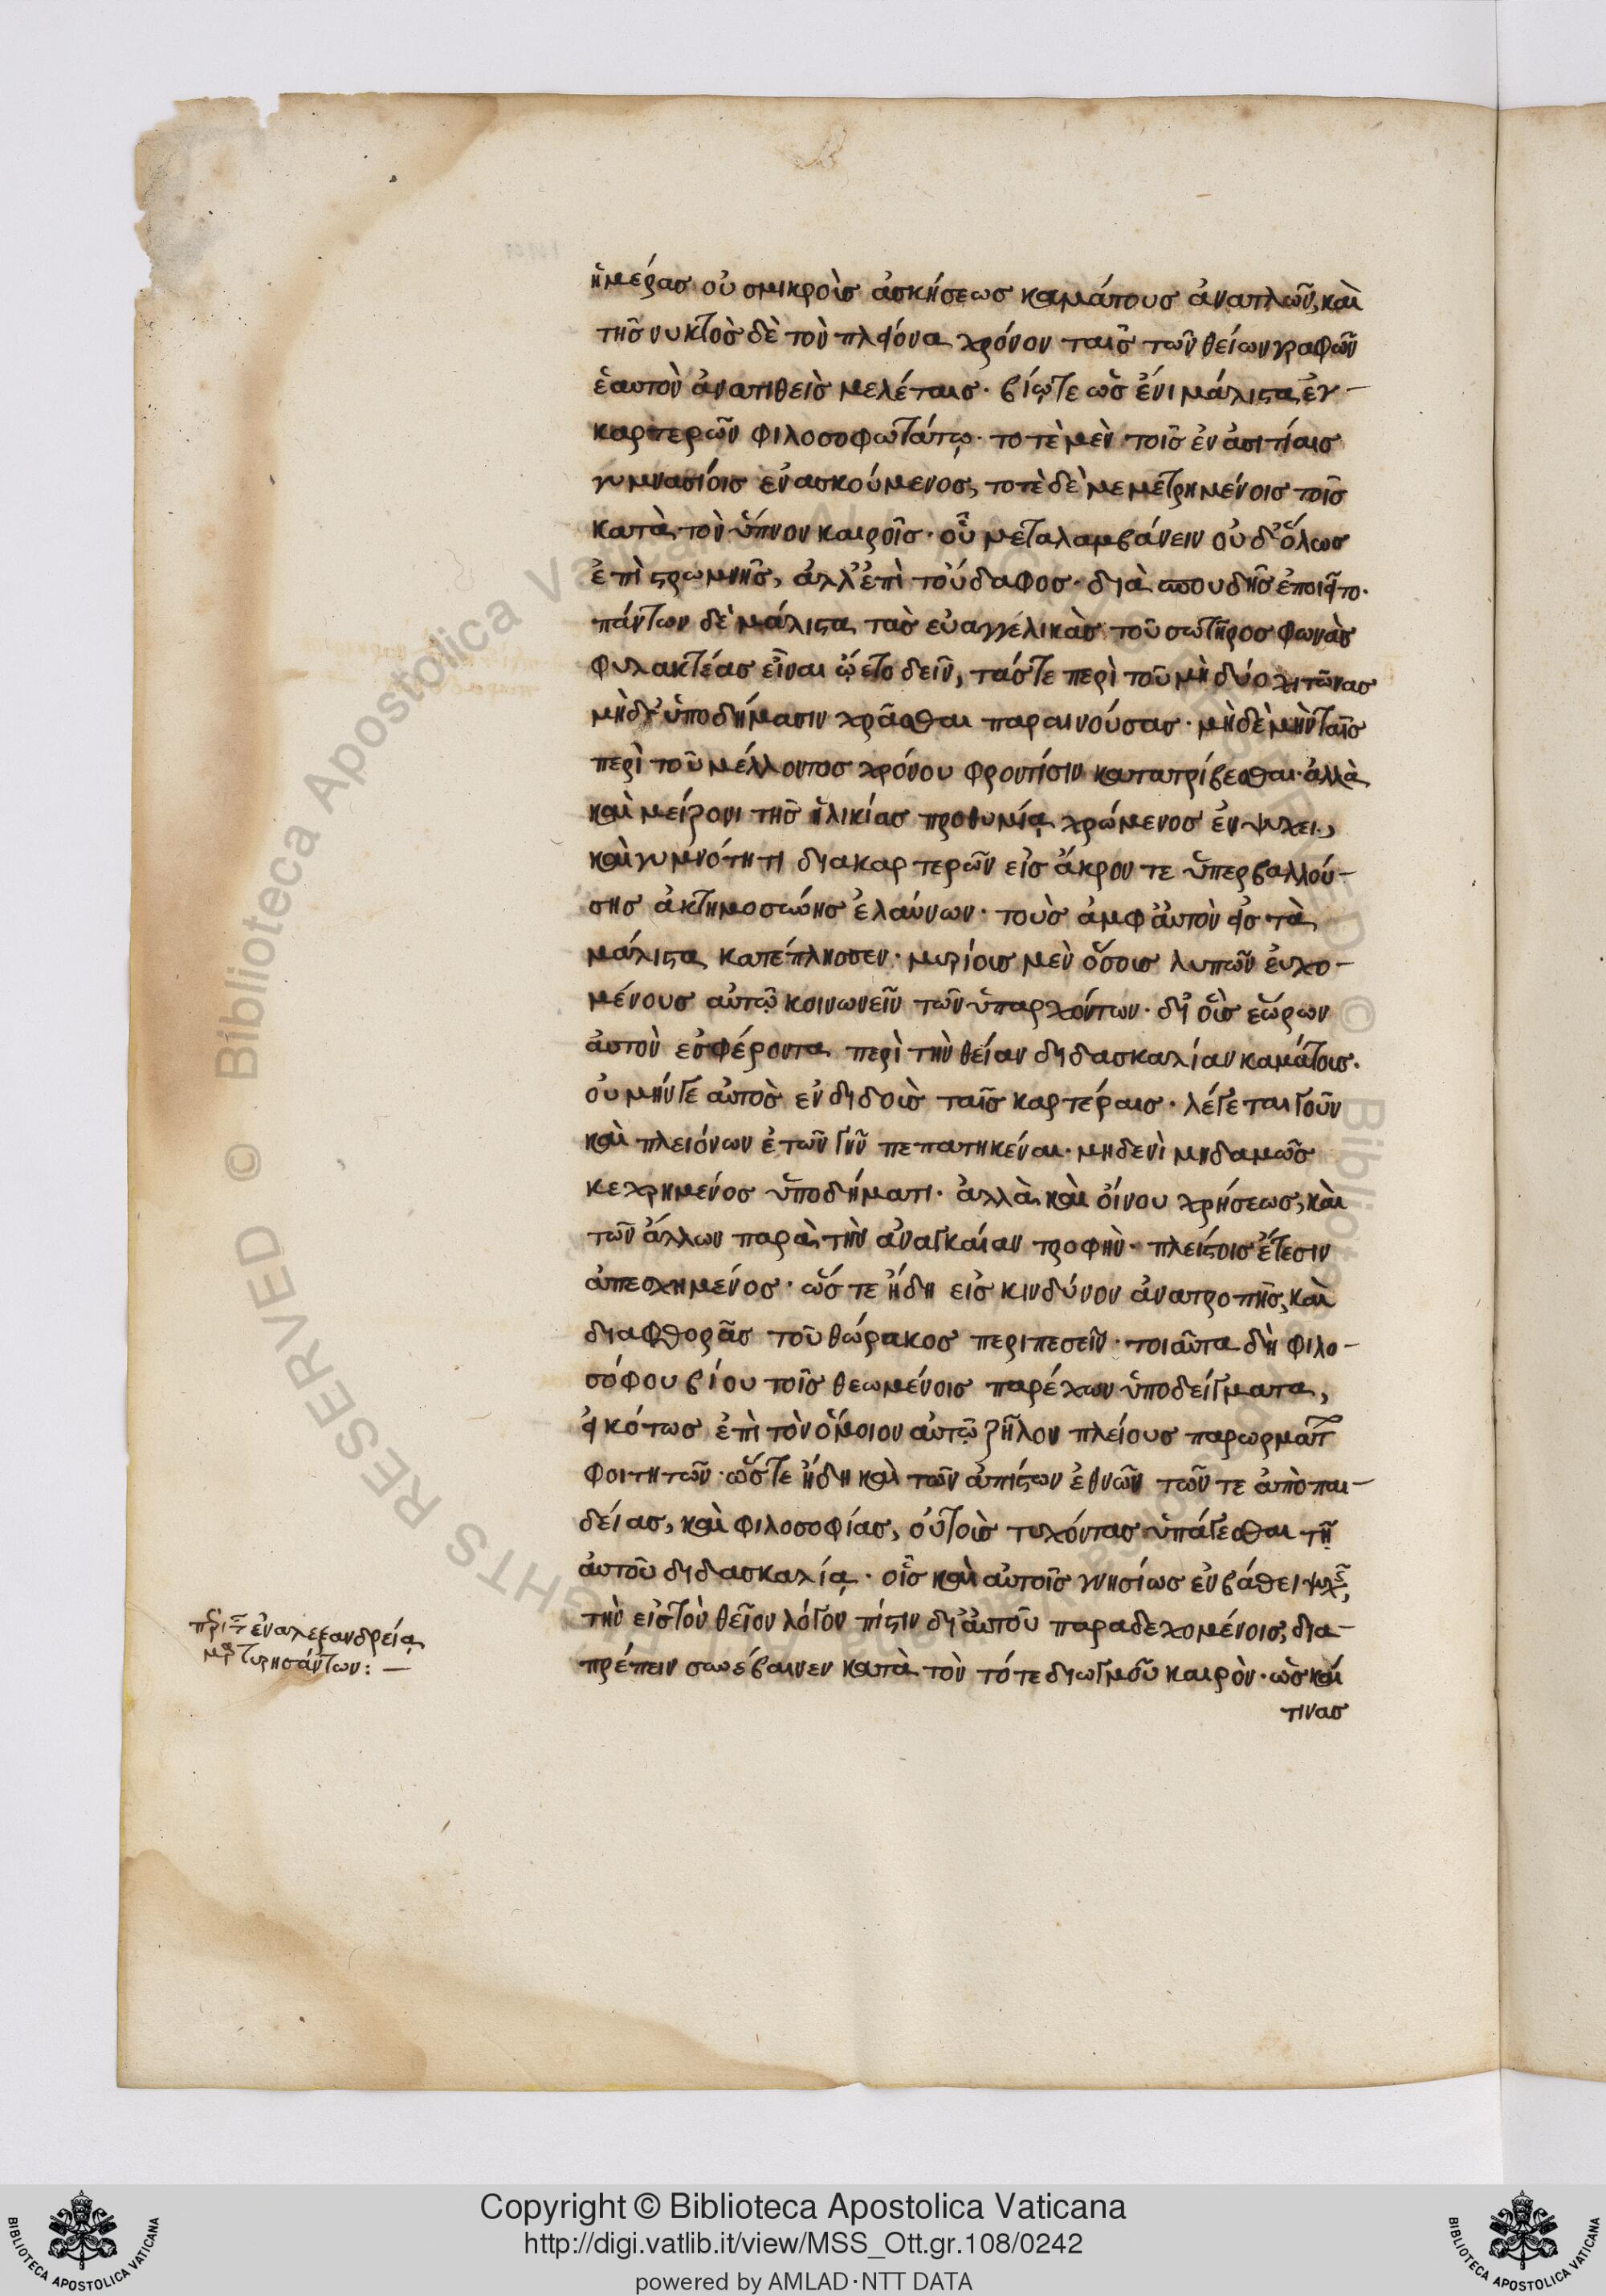 ἡμέρας οὐ σμικροὺς ἀσκήσεως καμάτους ἀναπλῶν, καὶ
τῆς νυκτὸς δὲ τὸν πλείονα χρόνον ταῖς τῶν θείων γραφῶν
ἑαυτὸν ἀνατιθεὶς μελέταις· βίῳ τε ὡς ἔνι μάλιστα ἐγ-
καρτερῶν φιλοσοφωτάτῳ· τοτὲ μὲν τοῖς ἐν ἀσιτίαις
γυμνασίοις ἐνασκούμενος, τοτὲ δὲ μεμετρημένοις τοῖς
κατὰ τὸν ὕπνον καιροῖς· οὗ μεταλαμβάνειν οὐδ' ὅλως
ἐπὶ στρωμνῆς, ἀλλ' ἐπὶ τοὔδαφος· διὰ σπουδῆς ἐποιεῖτο·
πάντων δὲ μάλιστα τὰς εὐαγγελικὰς τοῦ σωτῆρος φωνὰς
φυλακτέας εἶναι ᾤετο δεῖν, τάς τε περὶ τοῦ μὴ δύο χιτῶνας
μηδ' ὑποδήμασιν χρᾶσθαι παραινούσας· μὴ δὲ μὴν ταῖς
περὶ τοῦ μέλλοντος χρόνου φροντίσιν κατατρίβεσθαι· ἀλλὰ
καὶ μείζονι τῆς ἡλικίας προθυμίᾳ χρώμενος ἐν ψύχει,
καὶ γυμνότητι διακαρτερῶν εἰς ἄκρον τε ὑπερβαλλού-
σης ἀκτημοσύνης ἐλαύνων· τοὺς ἀμφ' αὐτὸν εἰς τὰ
μάλιστα κατέπλησσεν· μυρίοις μὲν ὅσοις λυπῶν εὐχο-
μένους αὐτῷ κοινωνεῖν τῶν ὑπαρχόντων· δι' οἷς ἑώρων
αὐτὸν εἰσφέροντα περὶ τὴν θείαν διδασκαλίαν καμάτοις·
οὐ μήν γε αὐτὸς ἐνδιδοὺς ταῖς καρτέραις· λέγεται γοῦν
καὶ πλειόνων ἐτῶν γῆν πεπατηκέναι· μηδενὶ μηδαμῶς
κεχρημένος ὑποδήματι· ἀλλὰ καὶ οἴνου χρήσεως, καὶ
τῶν ἄλλων παρὰ τὴν ἀναγκαίαν τροφὴν· πλείστοις ἔτεσιν
ἀπεσχημένος· ὥστε ἤδη εἰς κινδύνον ἀνατροπῆς, καὶ
διαφθορᾶς τοῦ θώρακος περιπεσεῖν· τοιαῦτα δὴ φιλο-
σόφου βίου τοῖς θεωμένοις παρέχων ὑποδείγματα,
εἰκότως ἐπὶ τὸν ὅμοιον αὐτῷ ζῆλον πλείους παρωρμᾶτ
φοιτητῶν· ὥστε ἤδη καὶ τῶν ἀπίστων ἐθνῶν τῶν τε ἀπὸ παι-
δείας, καὶ φιλοσοφίας, οὐ τοὺς τυχόντας ὑπάγεσθαι τῇ
αὐτοῦ διδασκαλίᾳ· οἷς καὶ αὐτοῖς γνησίως ἐν βάθει ψυχῆς,
τὴν εἰς τὸν θεῖον λόγον πίστιν δι' αὐτοῦ παραδεχομένοις, δια-
πρέπειν συνέβαινεν κατὰ τὸν τότε διωγμοῦ καιρὸν· ὡς καί
τινας
περὶ τῶν ἐν ἀλεξανδρείᾳ
μαρτυρησάντων: —
Copyright © Biblioteca Apostolica Vaticana
http://digi.vatlib.it/view/MSS_Ott.gr.108/0242
powered by AMLAD·NTT DATA
BIBLIOTECA APOSTOLICA VATICANA
BIBLIOTECA APOSTOLICA VATICANA